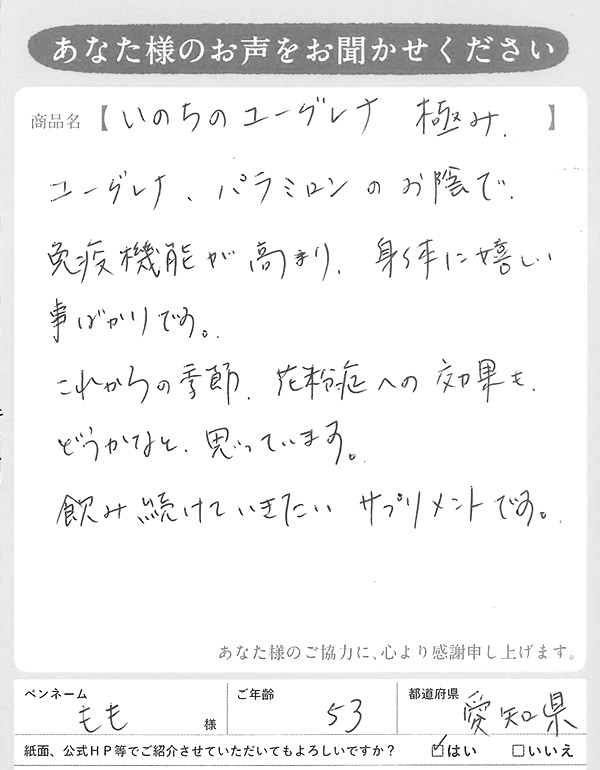 あなた様のお声をお聞かせください
商品名【いのちのユーグレナ 極み.】
ユーグレナ、パラミロンのお陰で、
免疫機能が高まり、身体に嬉しい
事ばかりです。
これからの季節、花粉症への効果も、
どうかなと、思っています。
飲み続けていきたいサプリメントです。
あなた様のご協力に、心より感謝申し上げます。
ペンネーム もも 様 ご年齢 53 都道府県 愛知県
紙面、公式HP等でご紹介させていただいてもよろしいですか？ ☑はい □いいえ